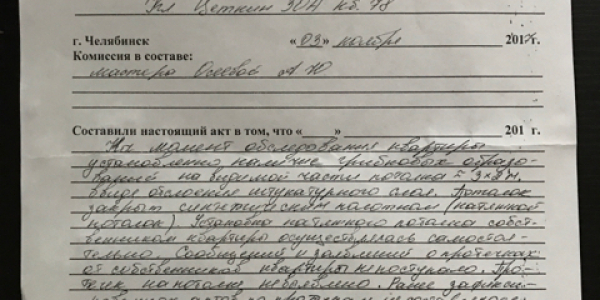 Кл Цеткин 30А кв. 78
г. Челябинск «03» ноября 2017г.
Комиссия в составе:
мастера Осевой А Ю
Составили настоящий акт в том, что «___» 201 г.
На момент обследования квартиры
установленно наличие грибковых образо-
ваний на видимой части потолка ≈
виде отслоения штукатурного слоя. Потолок
закрыт синтетическим полотном (натяжной
потолок). Установка натяжного потолка собст-
венником квартиры осуществлялась самостоя-
тельно. Сообщений и заявлений о протечках
от собственников квартиры не поступало. Про-
течек на потолке не выявлено. Ранее